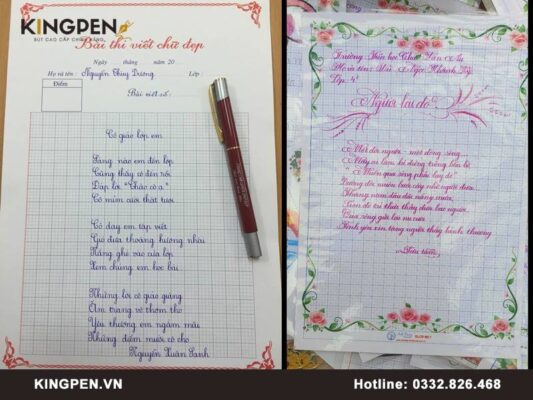 KINGPEN
BÚT CAO CẤP CHÍNH HÃNG
Bài thi viết chữ đẹp
Ngày tháng năm 20
Họ và tên: Nguyễn Thùy Dương Lớp:
Điểm
Bài viết số:
Cô giáo lớp em
Sáng nào em đến lớp
Cũng thấy cô đến rồi
Đáp lời "Chào cô ạ"
Cô mỉm cười thật tươi.
Cô dạy em tập viết
Gió đưa thoảng hương nhài
Nắng ghé vào cửa lớp
Xem chúng em học bài
Những lời cô giáo giảng
Ấm trang vở thơm tho
Yêu thương em ngắm mãi
Những điểm mười cô cho
Nguyễn Xuân Sanh
Trường Tiểu học Chu Văn An
Họ và tên: Ngọc Khánh
Lớp 4
Người lái đò
Một đời người - một dòng sông
Mấy ai làm kẻ đứng trông bến bờ
"Muốn qua sông phải lụy đò"
Đường đời muôn bước cậy nhờ người đưa
Tháng năm dầu dãi nắng mưa
Con đò trí thức thầy đưa bao người
Qua sông gửi lại nụ cười
Tình yêu xin tặng người thầy kính thương
KINGPEN.VN
Hotline: 0332.826.468